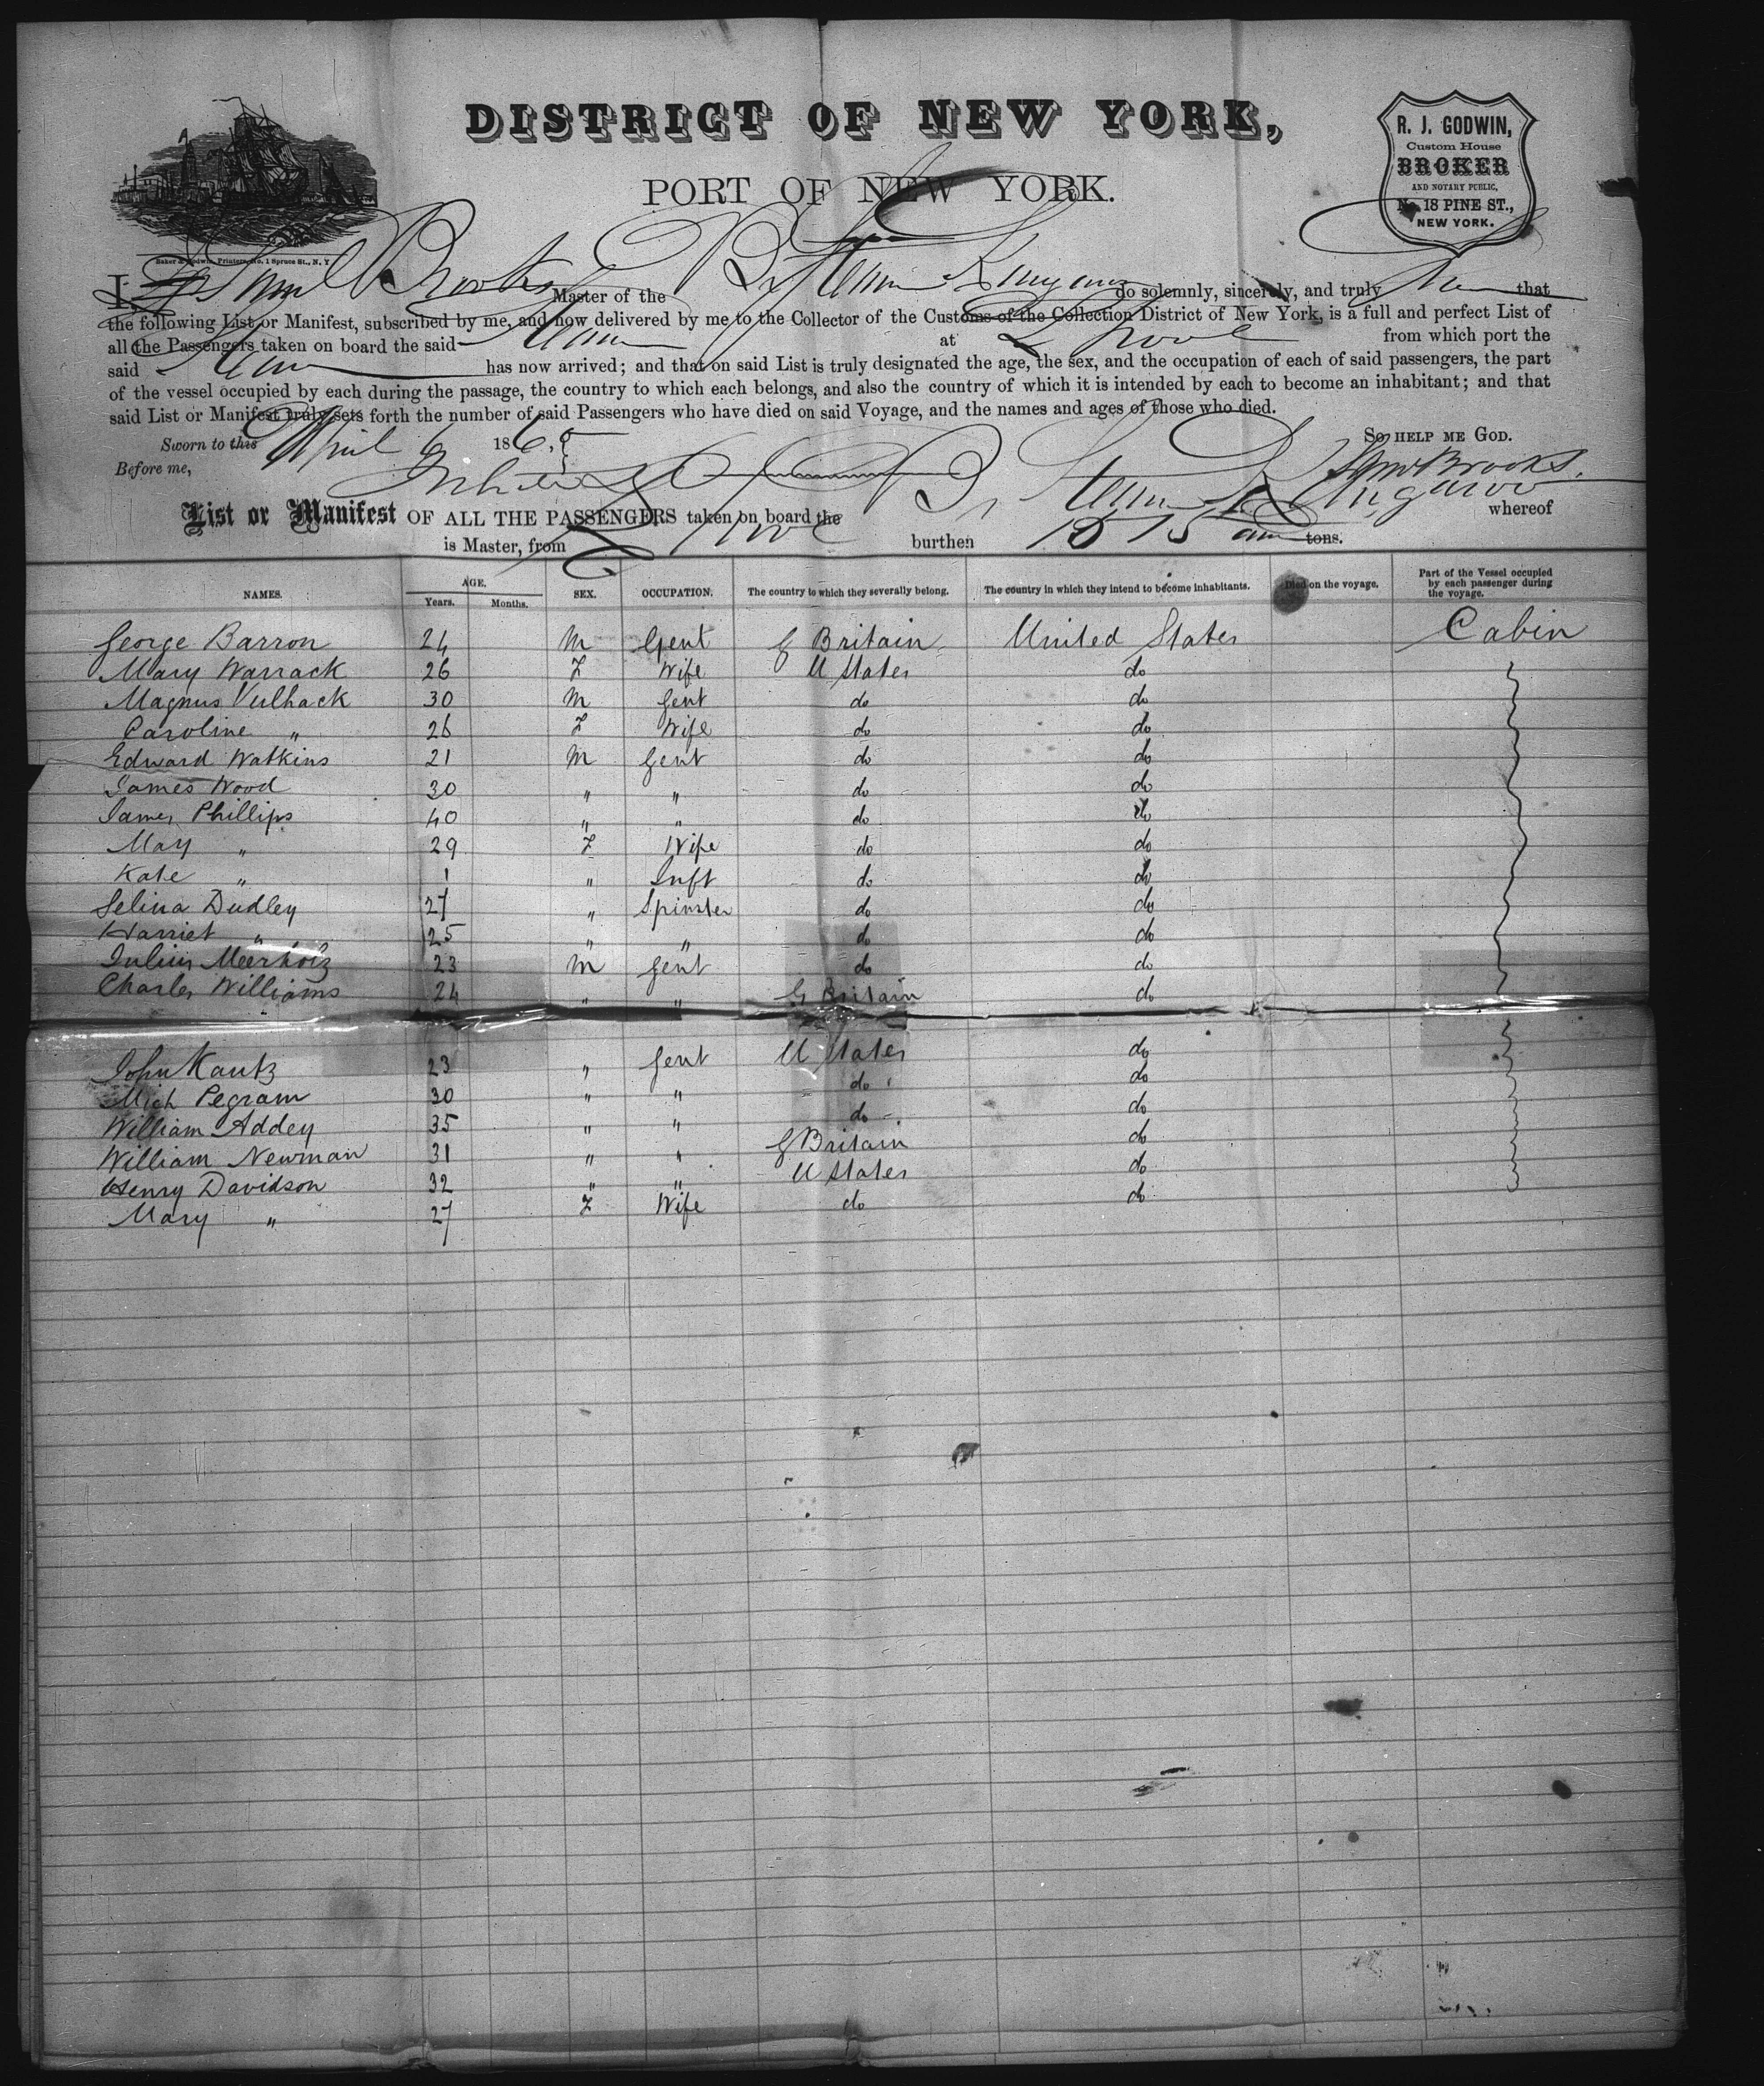 DISTRICT OF NEW YORK,
PORT OF NEW YORK.
R. J. GODWIN,
Custom House
BROKER
AND NOTARY PUBLIC,
No. 18 PINE ST.,
NEW YORK.
Baker & Godwin, Printers, No. 1 Spruce St., N. Y
I, Saml Brooks Master of the Br Steam do solemnly, sincerely, and truly that
the following List or Manifest, subscribed by me, and now delivered by me to the Collector of the Customs of the Collection District of New York, is a full and perfect List of
all the Passengers taken on board the said Steam at L pool from which port the
said Steam has now arrived; and that on said List is truly designated the age, the sex, and the occupation of each of said passengers, the part
of the vessel occupied by each during the passage, the country to which each belongs, and also the country of which it is intended by each to become an inhabitant; and that
said List or Manifest truly sets forth the number of said Passengers who have died on said Voyage, and the names and ages of those who died.
Sworn to this April 6 186 5 So HELP ME GOD.
Before me, Saml Brooks.
List or Manifest OF ALL THE PASSENGERS taken on board the Br Steam whereof
is Master, from L pool burthen 1575 tons.
NAMES. AGE. Years. Months. SEX. OCCUPATION. The country to which they severally belong. The country in which they intend to become inhabitants. Died on the voyage. Part of the Vessel occupied by each passenger during the voyage.
George Barron 24 M Gent G Britain United States Cabin
Mary Warrack 26 F Wife U States do
Magnus 30 M Gent do do
Caroline " 26 F Wife do do
Edward Watkins 21 M Gent do do
James Wood 30 " " do do
James Phillips 40 " " do do
Mary " 29 F Wife do do
Kate " 1 " Inft do do
Selina Dudley 27 " Spinster do do
Harriet " 25 " " do do
Julius Meerholz 23 M Gent do do
Charles Williams 24 " " G Britain do
John Kautz 23 " Gent U States do
Mich Pegram 30 " " do do
William Addey 35 " " do do
William Newman 31 " " G Britain do
Henry Davidson 32 " " U States do
Mary " 27 F Wife do do